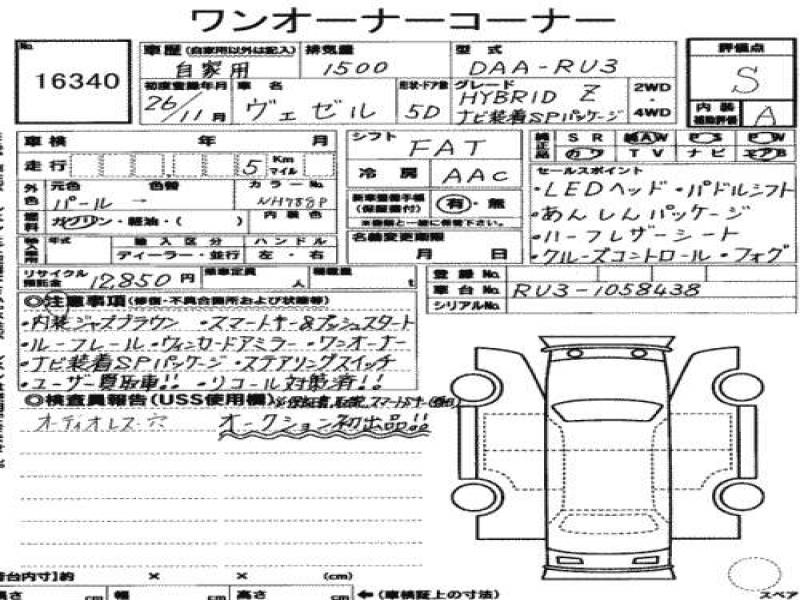 ワンオーナーコーナー
No. 16340
車歴 (自家用以外は記入) 自家用
排気量 1500
型式 DAA-RU3
評価点 S
初度登録年月 26/11月
車名 ヴェゼル
形状・ドア数 5D
グレード HYBRID Z
ナビ装着SPパッケージ
2WD・4WD
内装補助評価 A
車検 年 月
シフト FAT
純正品 SR AW PS PW
カワ TV ナビ エアB
走行 5 Km マイル
冷房 AAC
セールスポイント
・LEDヘッド・パドルシフト
・あんしんパッケージ
・ハーフレザーシート
・クルーズコントロール・フォグ
外色 元色 パール 色替 → カラーNo. NH788P
(保証書付) 有・無
燃料 ガソリン・軽油・( ) 内装色
年式 輸入区分 ハンドル
ディーラー・並行 左・右
名義変更期限 月 日
リサイクル預託金 12,850円 乗車定員 人 積載量 t
登録No.
車台No. RU3-1058438
シリアルNo.
◎注意事項(修復・不具合箇所および状態等)
・内装ジャズブラウン ・スマートキー&プッシュスタート
・ルーフレール・ウィンカードアミラー・ワンオーナー
・ナビ装着SPパッケージ・ステアリングスイッチ
・ユーザー買取車!! ・リコール対策済!!
◎検査員報告(USS使用欄)
オーディオレス穴 オークション初出品!!
荷台内寸]約 × × (cm)
長さ cm 幅 cm 高さ cm ←(車検証上の寸法)
スペア